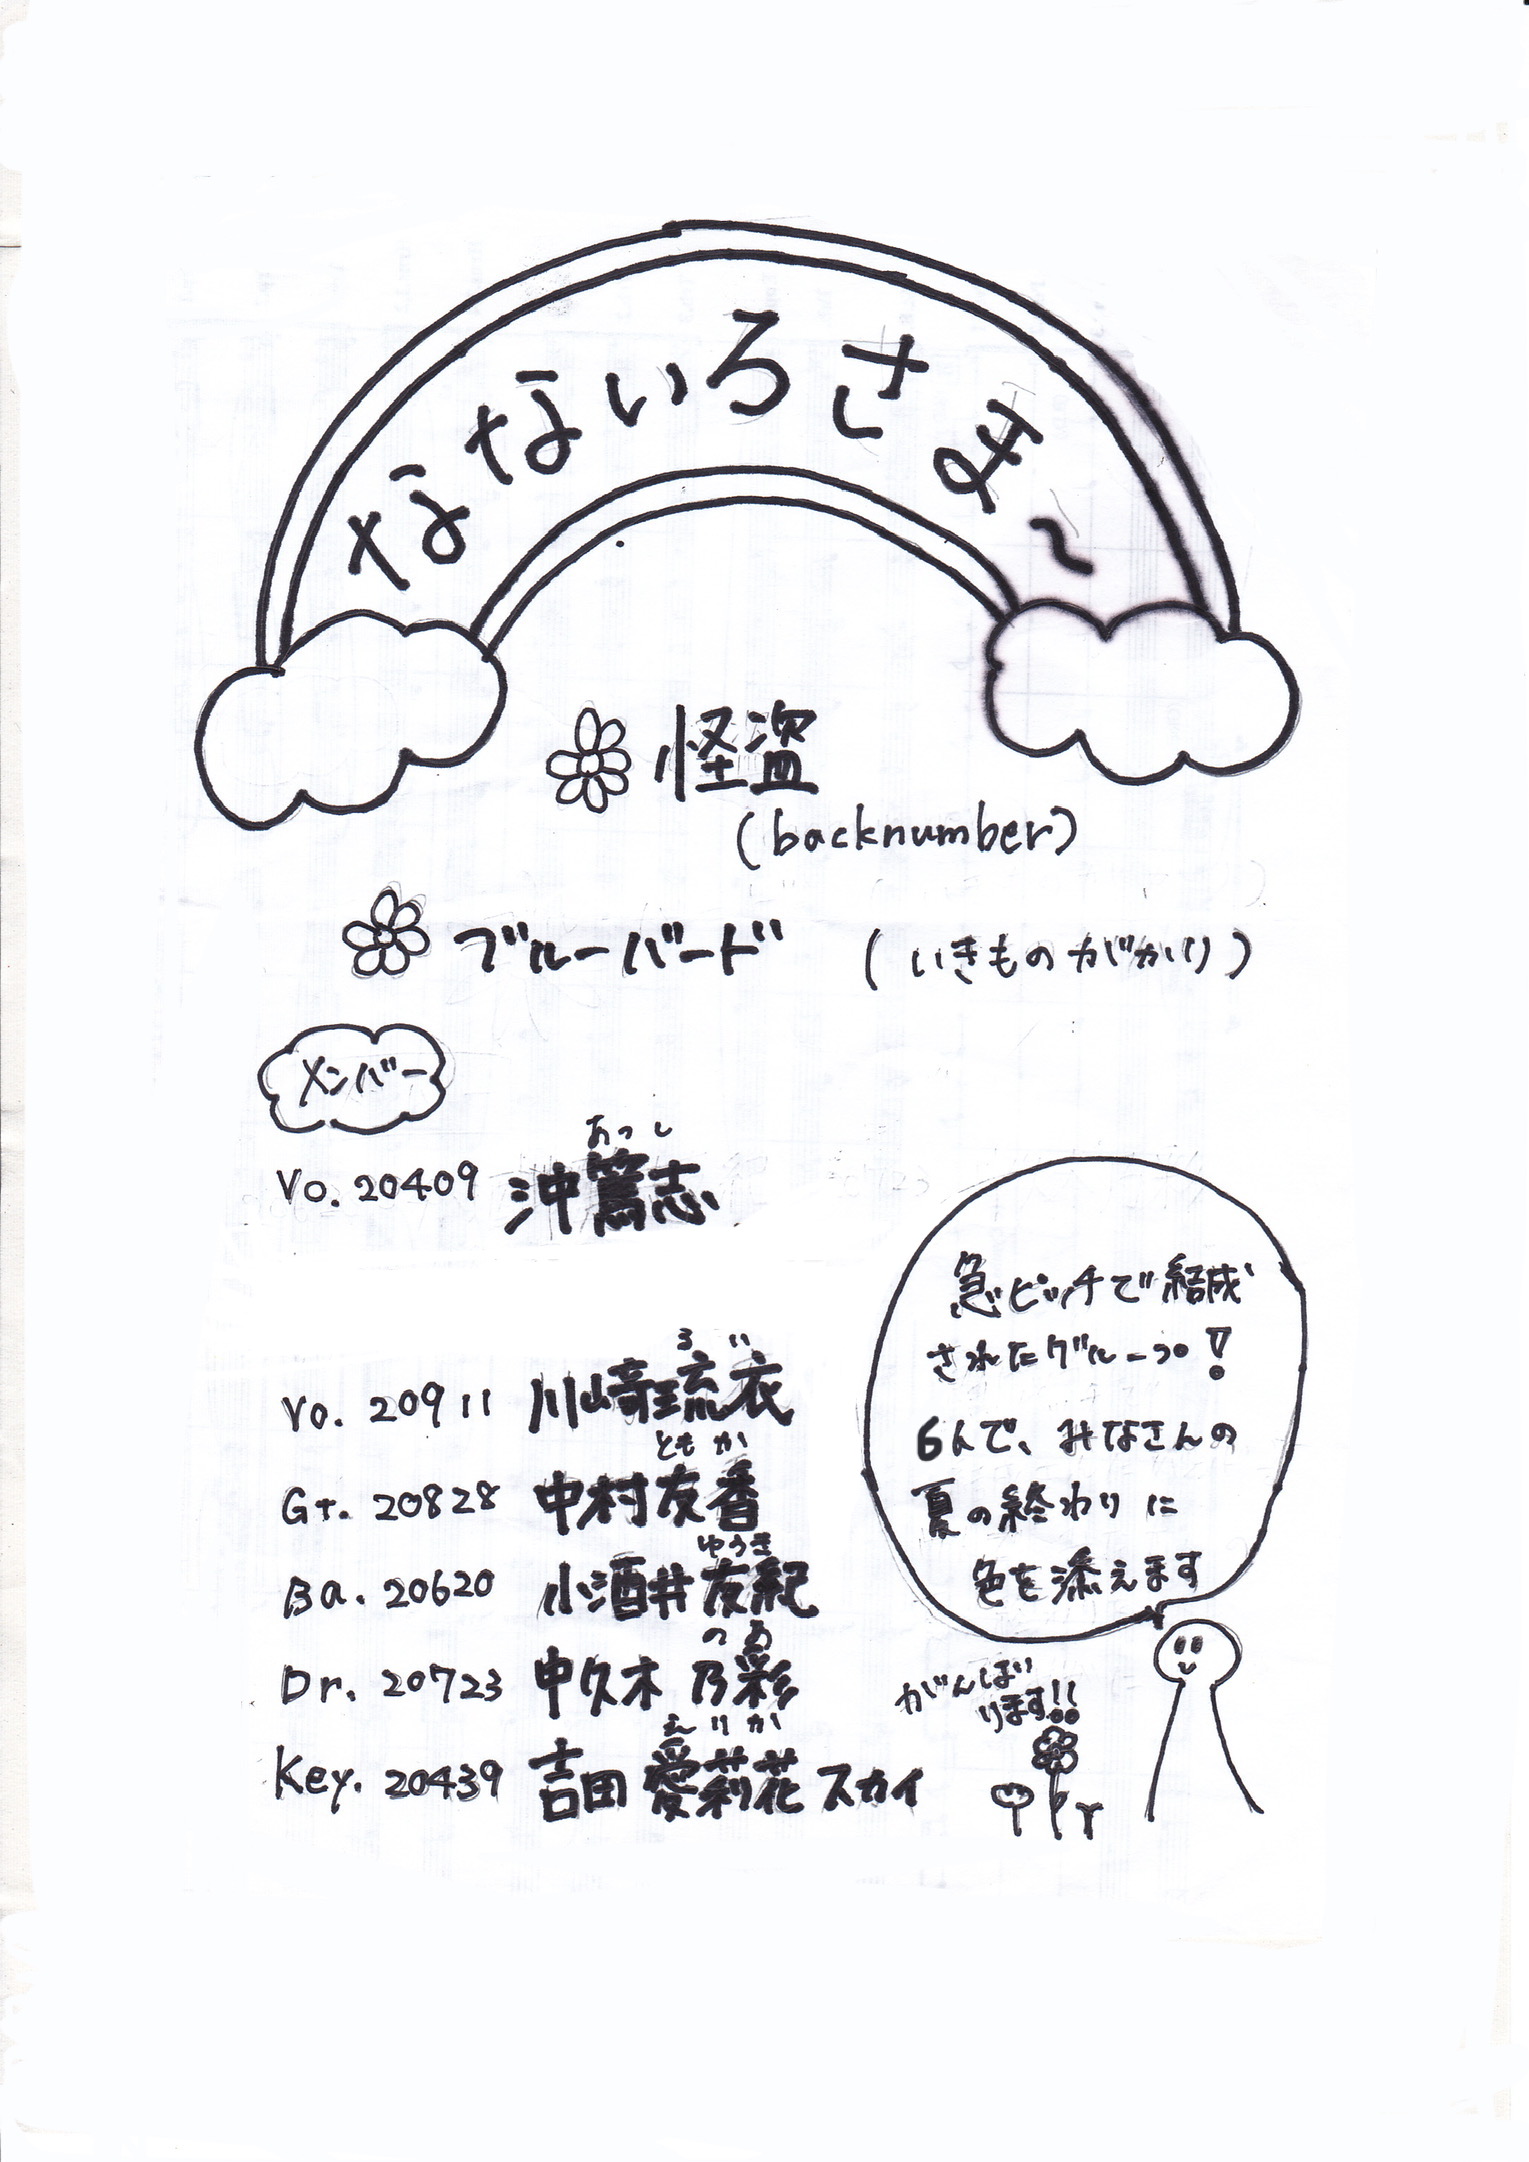 なないろさま〜
怪盗
(backnumber)
ブルーバード (いきものがかり)
メンバー
あつし
Vo. 20409 沖篤志
るい
Vo. 20911 川崎琉衣
ともか
Gt. 20828 中村友香
ゆうき
Ba. 20620 小酒井友紀
のあ
Dr. 20723 中久木乃彩
えりか
Key. 20439 吉田愛莉花スカイ
急ピッチで結成
されたグループ!
6人で、みなさんの
夏の終わりに
色を添えます
がんば
ります!!